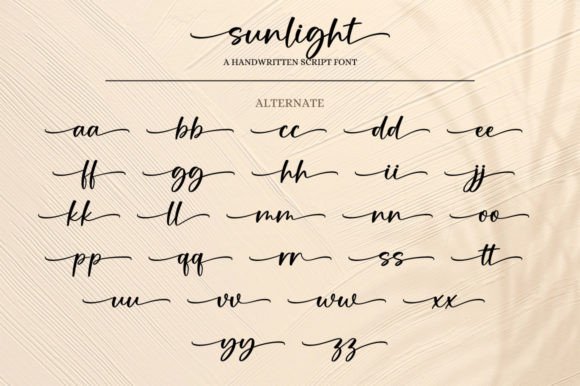 sunlight
A HANDWRITTEN SCRIPT FONT
ALTERNATE
aa bb cc dd ee
ff gg hh ii jj
kk ll mm nn oo
pp qq rr ss tt
uu vv ww xx
yy zz